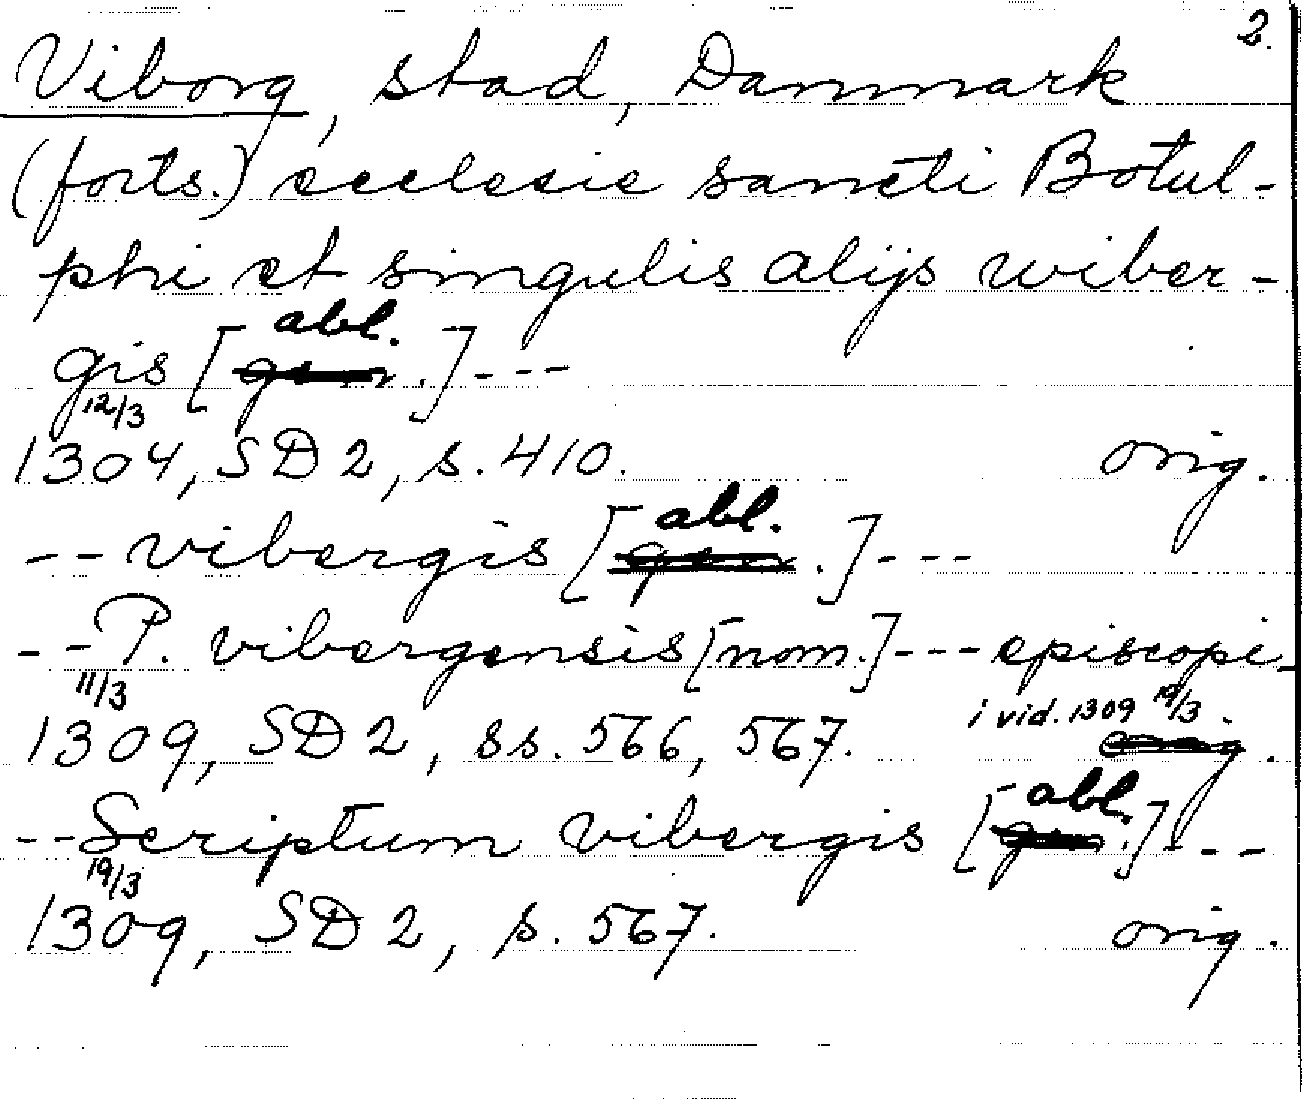 2.
Viborg, stad, Danmark
(forts.) ecclesie sancti Botul-
phi et singulis alijs wiber-
gis [abl.]---
12/3
1304, SD 2, s. 410. orig.
-- vibergis [abl.]---
--P. vibergensis [nom.]--- episcopi-
11/3
1309, SD 2, ss. 566, 567. i vid. 1309 19/3.
--Scriptum vibergis [abl.]---
19/3
1309, SD 2, s. 567. orig.